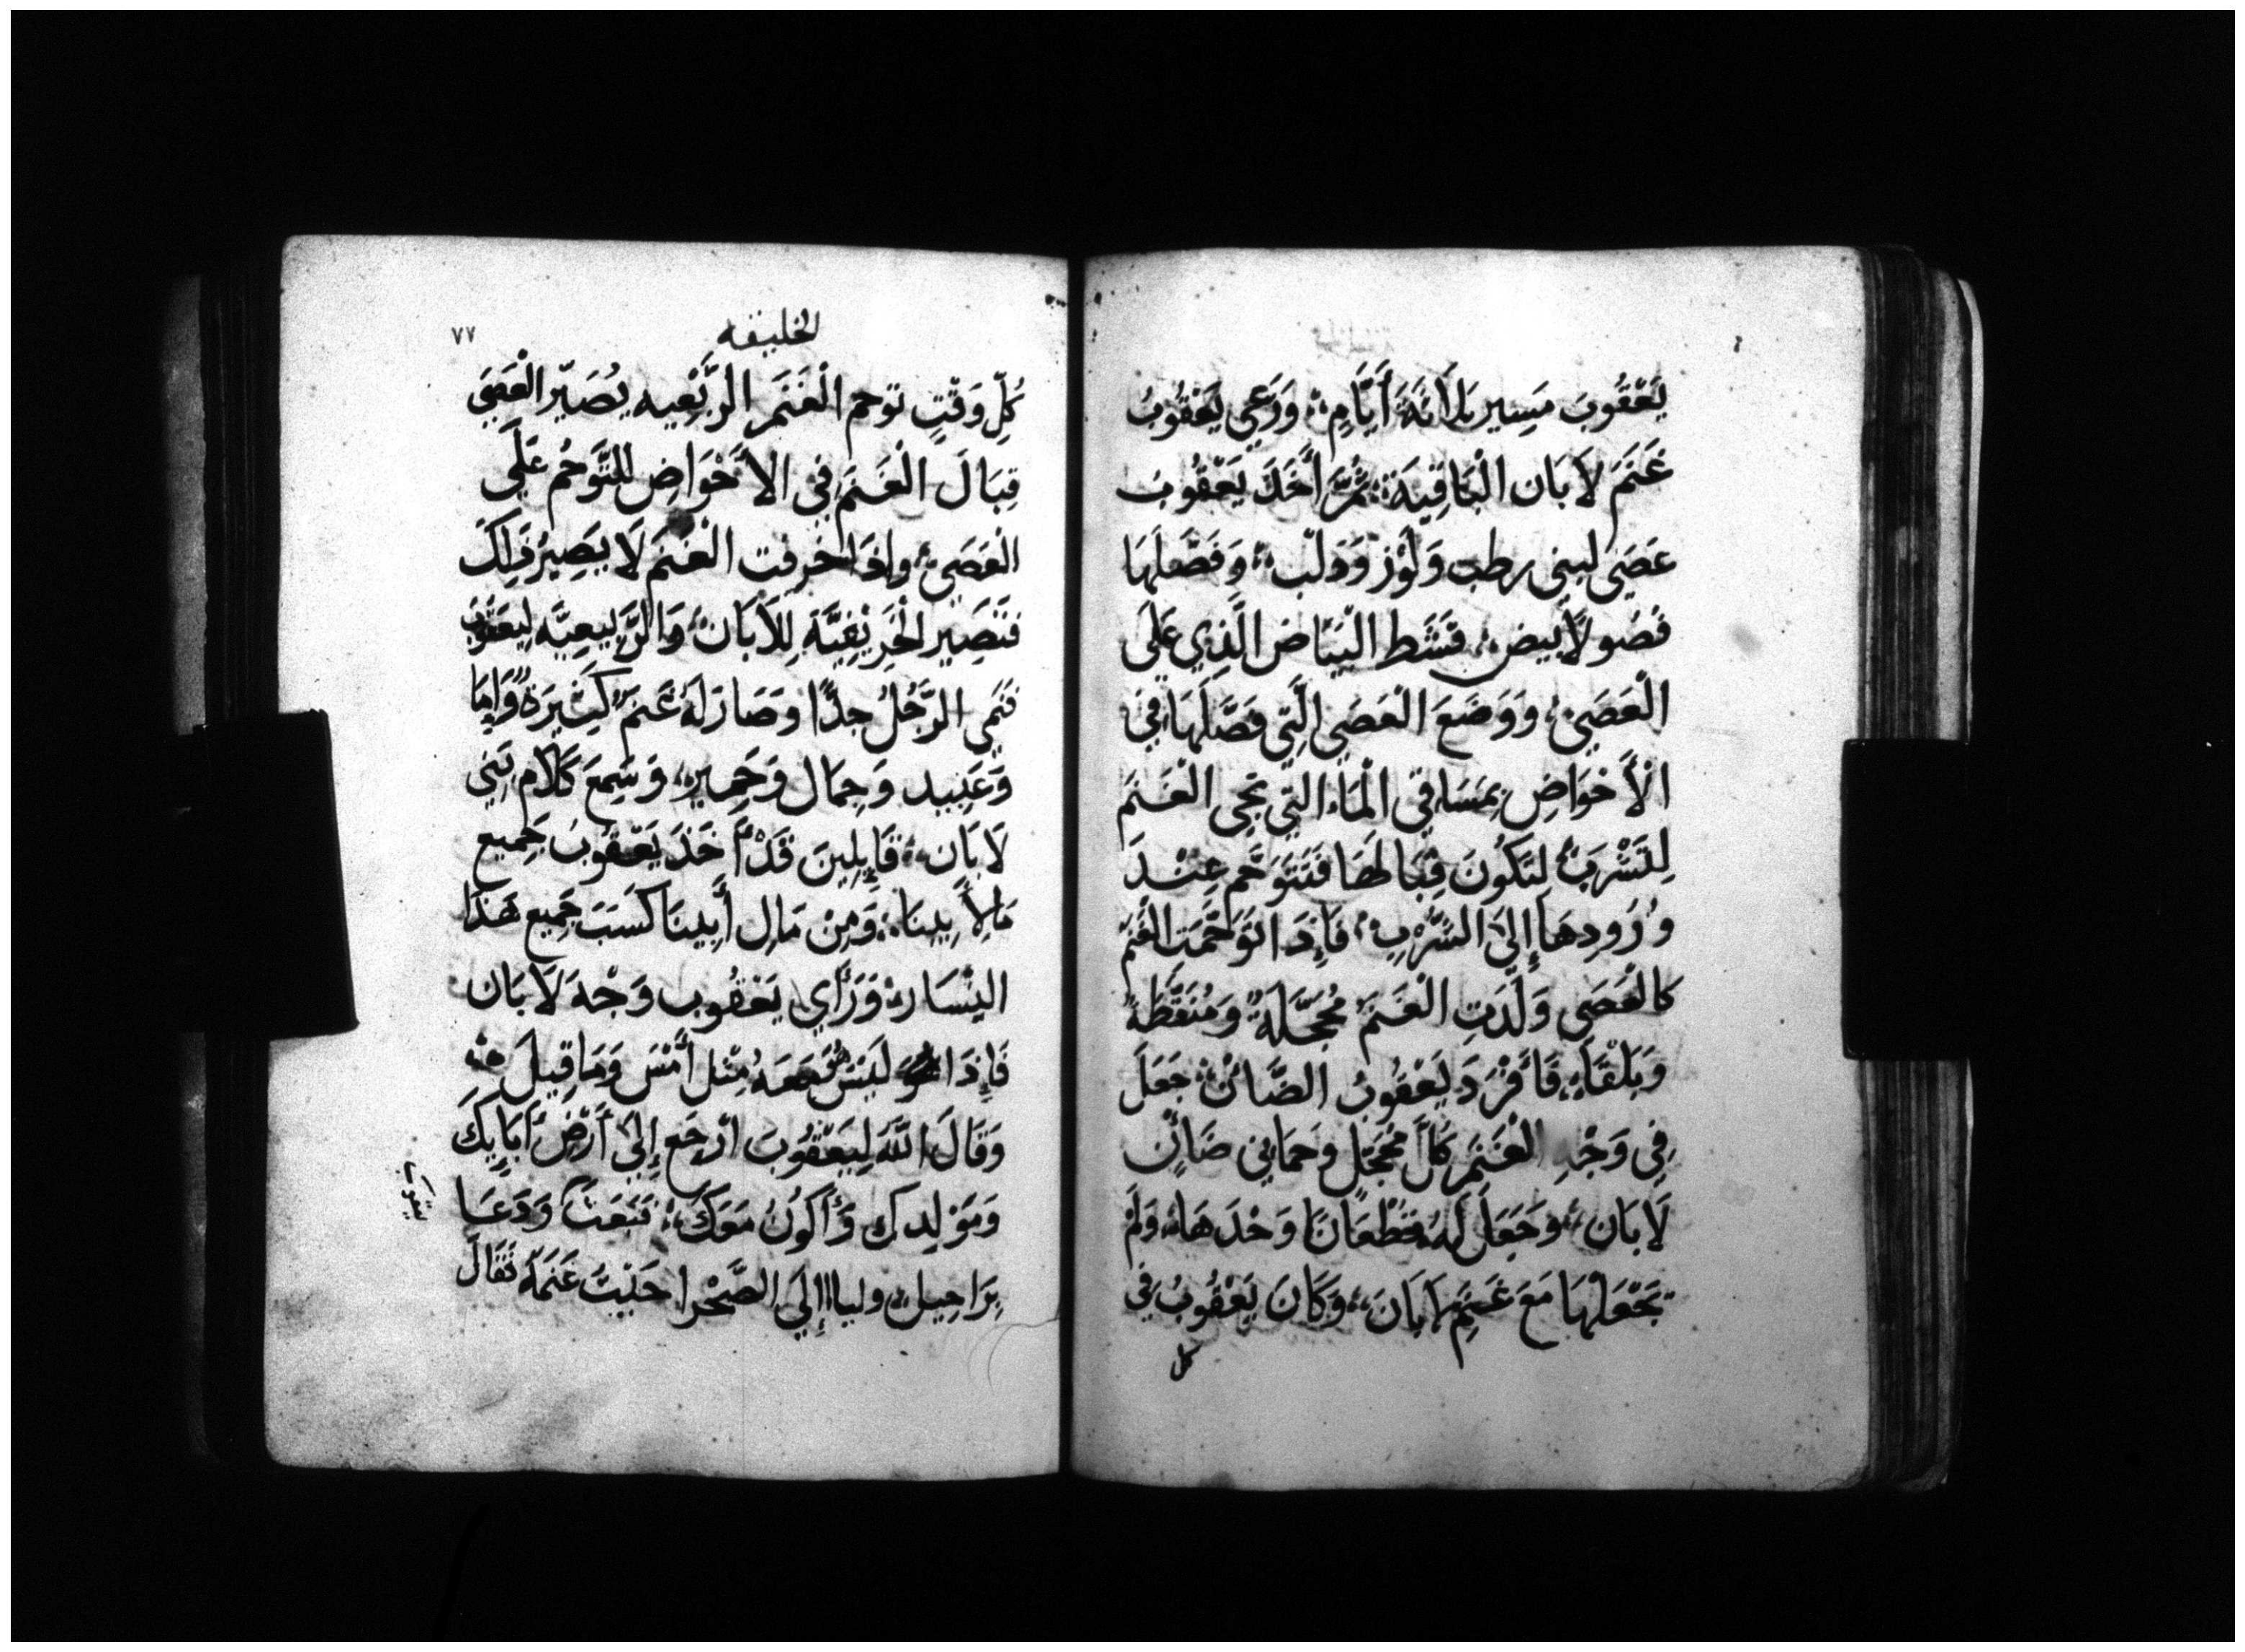 يَعْقُوبَ مَسِير ثلاثَةَ أَيَّامٍ وَرَعَي يَعْقُوبُ
غَنَمَ لاَبَان الْبَاقِيَة ثُمَّ أَخَذَ يَعْقُوبُ
عَصَي لبني رطب وَلَوْز وَدَلب وَفَصَّلَهَا
فصولاً بيض فَشَط الْبَيَاض الَّذِي عَلَى
الْعَصَي وَوَضَعَ الْعَصَي الَّتِي فَصَّلَهَا فِي
الْأَحْوَاضِ بِمَسَاقي الْمَاء التي تجي الْغَنَمَ
لِلشَّرْبِ لتَكُونَ قِبَالهَا فَتَتَوَحَّم عِنْدَ
وُرُودِهَا إِلَى الشُّرْبِ فَإِذَا تَوَحَّمَتِ الْغَنَمُ
كالعَصَي وَلَّدَتِ الْغَنَمُ مُحَجَّلَةً وَمُنَقَّطَةً
وَبَلْقَاءَ فَأَفْرَدَ يَعْقُوبُ الضَّانَ جَعَلَ
فِي وَجْهِ الْغَنَمِ كَلَّ مُحَجَّلٍ وَحَمَانِي ضَان
لَابَان وَجَعَلَ لَهُ قطْعَانًا وَحْدَهَا وَلَمْ
يَجْعَلْهَا مَعَ غَنَمِ لاَبَانَ وَكَانَ يَعْقُوبُ فِي
كل
الخليقه
٧٧
كُلِّ وَقْتٍ توحم الْغَنَمَ الرَّبْعِيه يُصَيِّر الْعَصَي
قِبَالَ الْغَنَمِ فِي الأَحْوَاضِ للتَّوَحُم عَلَي
الْعَصَي وإذَا خرفت الْغَنَمَ لَا يَصِيرُ ذَلِكَ
فَتَصِير الْخَرِيْفِيَّة لِلاَبَان وَالرَّبِيعِيَّه لِيَعْقُوبَ
فَنَمي الرَّجُلُ جدًّا وَصَارَ لَهُ غَنَمٌ كَثِيرَةٌ وَإِمَا
وَعَبِيد وَجِمَال وَحَمِير وَسَمِعَ كَلَام بَنِي
لَابَان قَايِلِينَ قَدْ أَخَذَ يَعْقُوبَ جَمِيع
مَا لأَبِينَا وَمِنْ مَالِ أَبِينَا كَسَبَ جَمِيع هَذَا
اليَسَار وَرَأَي يَعْقُوب وَجْهَ لَابَان
فَإِذَا هو لَيْسَ مَعَهُ مِثْل أَمْسَ وَمَا قِيلَ
وَقَالَ اللَّه لِيَعْقُوبَ ارْجَع إِلَى أَرْضِ أَبَايِكَ
وَمَوْلِدك وَأَكُونُ مَعَكَ فَبَعَثَ يعقوب وَدَعَا
بِرَاحِيل وليا إِلَي الصَّحْرا حَيْثُ غَنَمَهُ فَقَالَ